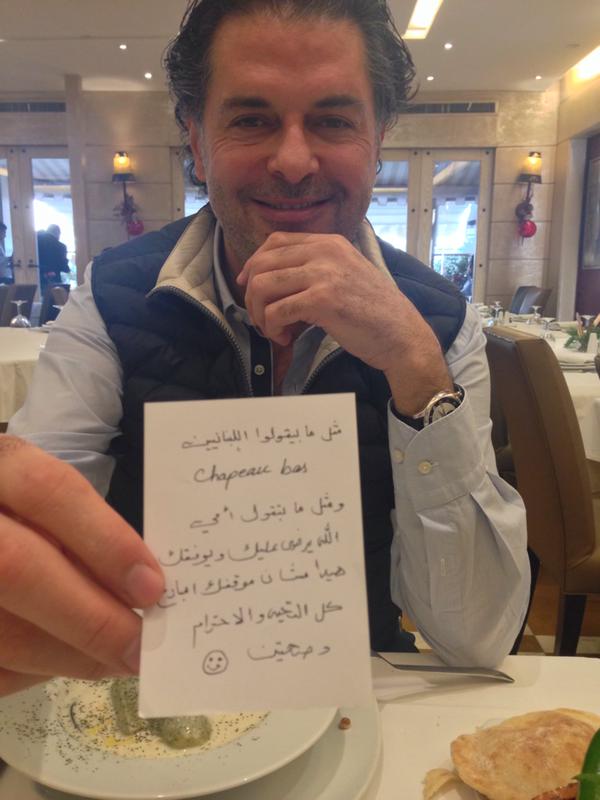 مثل ما بيقولوا اللبنانيين
Chapeau bas
ومثل ما بتقول امي
الله يرضى عليك ويوفقك
هيدا مشان موقفك امبارح
كل التحيه والاحترام
وصحتين